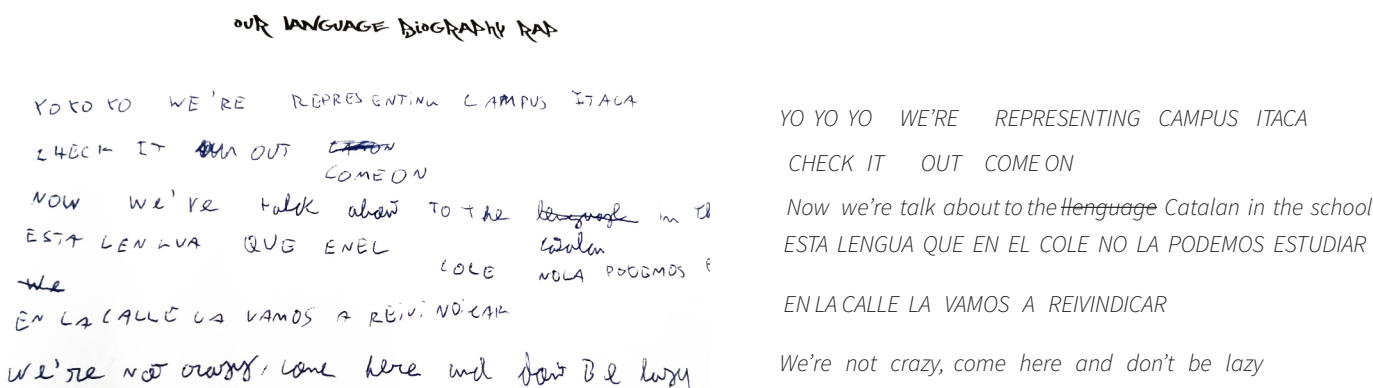 OUR LANGUAGE BIOGRAPHY RAP
YO YO YO WE'RE REPRESENTING CAMPUS ITACA
CHECK IT OUT
COME ON
NOW We've talk about TO the lenguage in th
Catalan
ESTA LENGUA QUE EN EL COLE NO LA PODEMOS E
We
EN LA CALLE LA VAMOS A REIVINDICAR
We're not crazy, come here and don't Be lazy
YO YO YO WE'RE REPRESENTING CAMPUS ITACA
CHECK IT OUT COME ON
Now we're talk about to the llenguage Catalan in the school
ESTA LENGUA QUE EN EL COLE NO LA PODEMOS ESTUDIAR
EN LA CALLE LA VAMOS A REIVINDICAR
We're not crazy, come here and don't be lazy